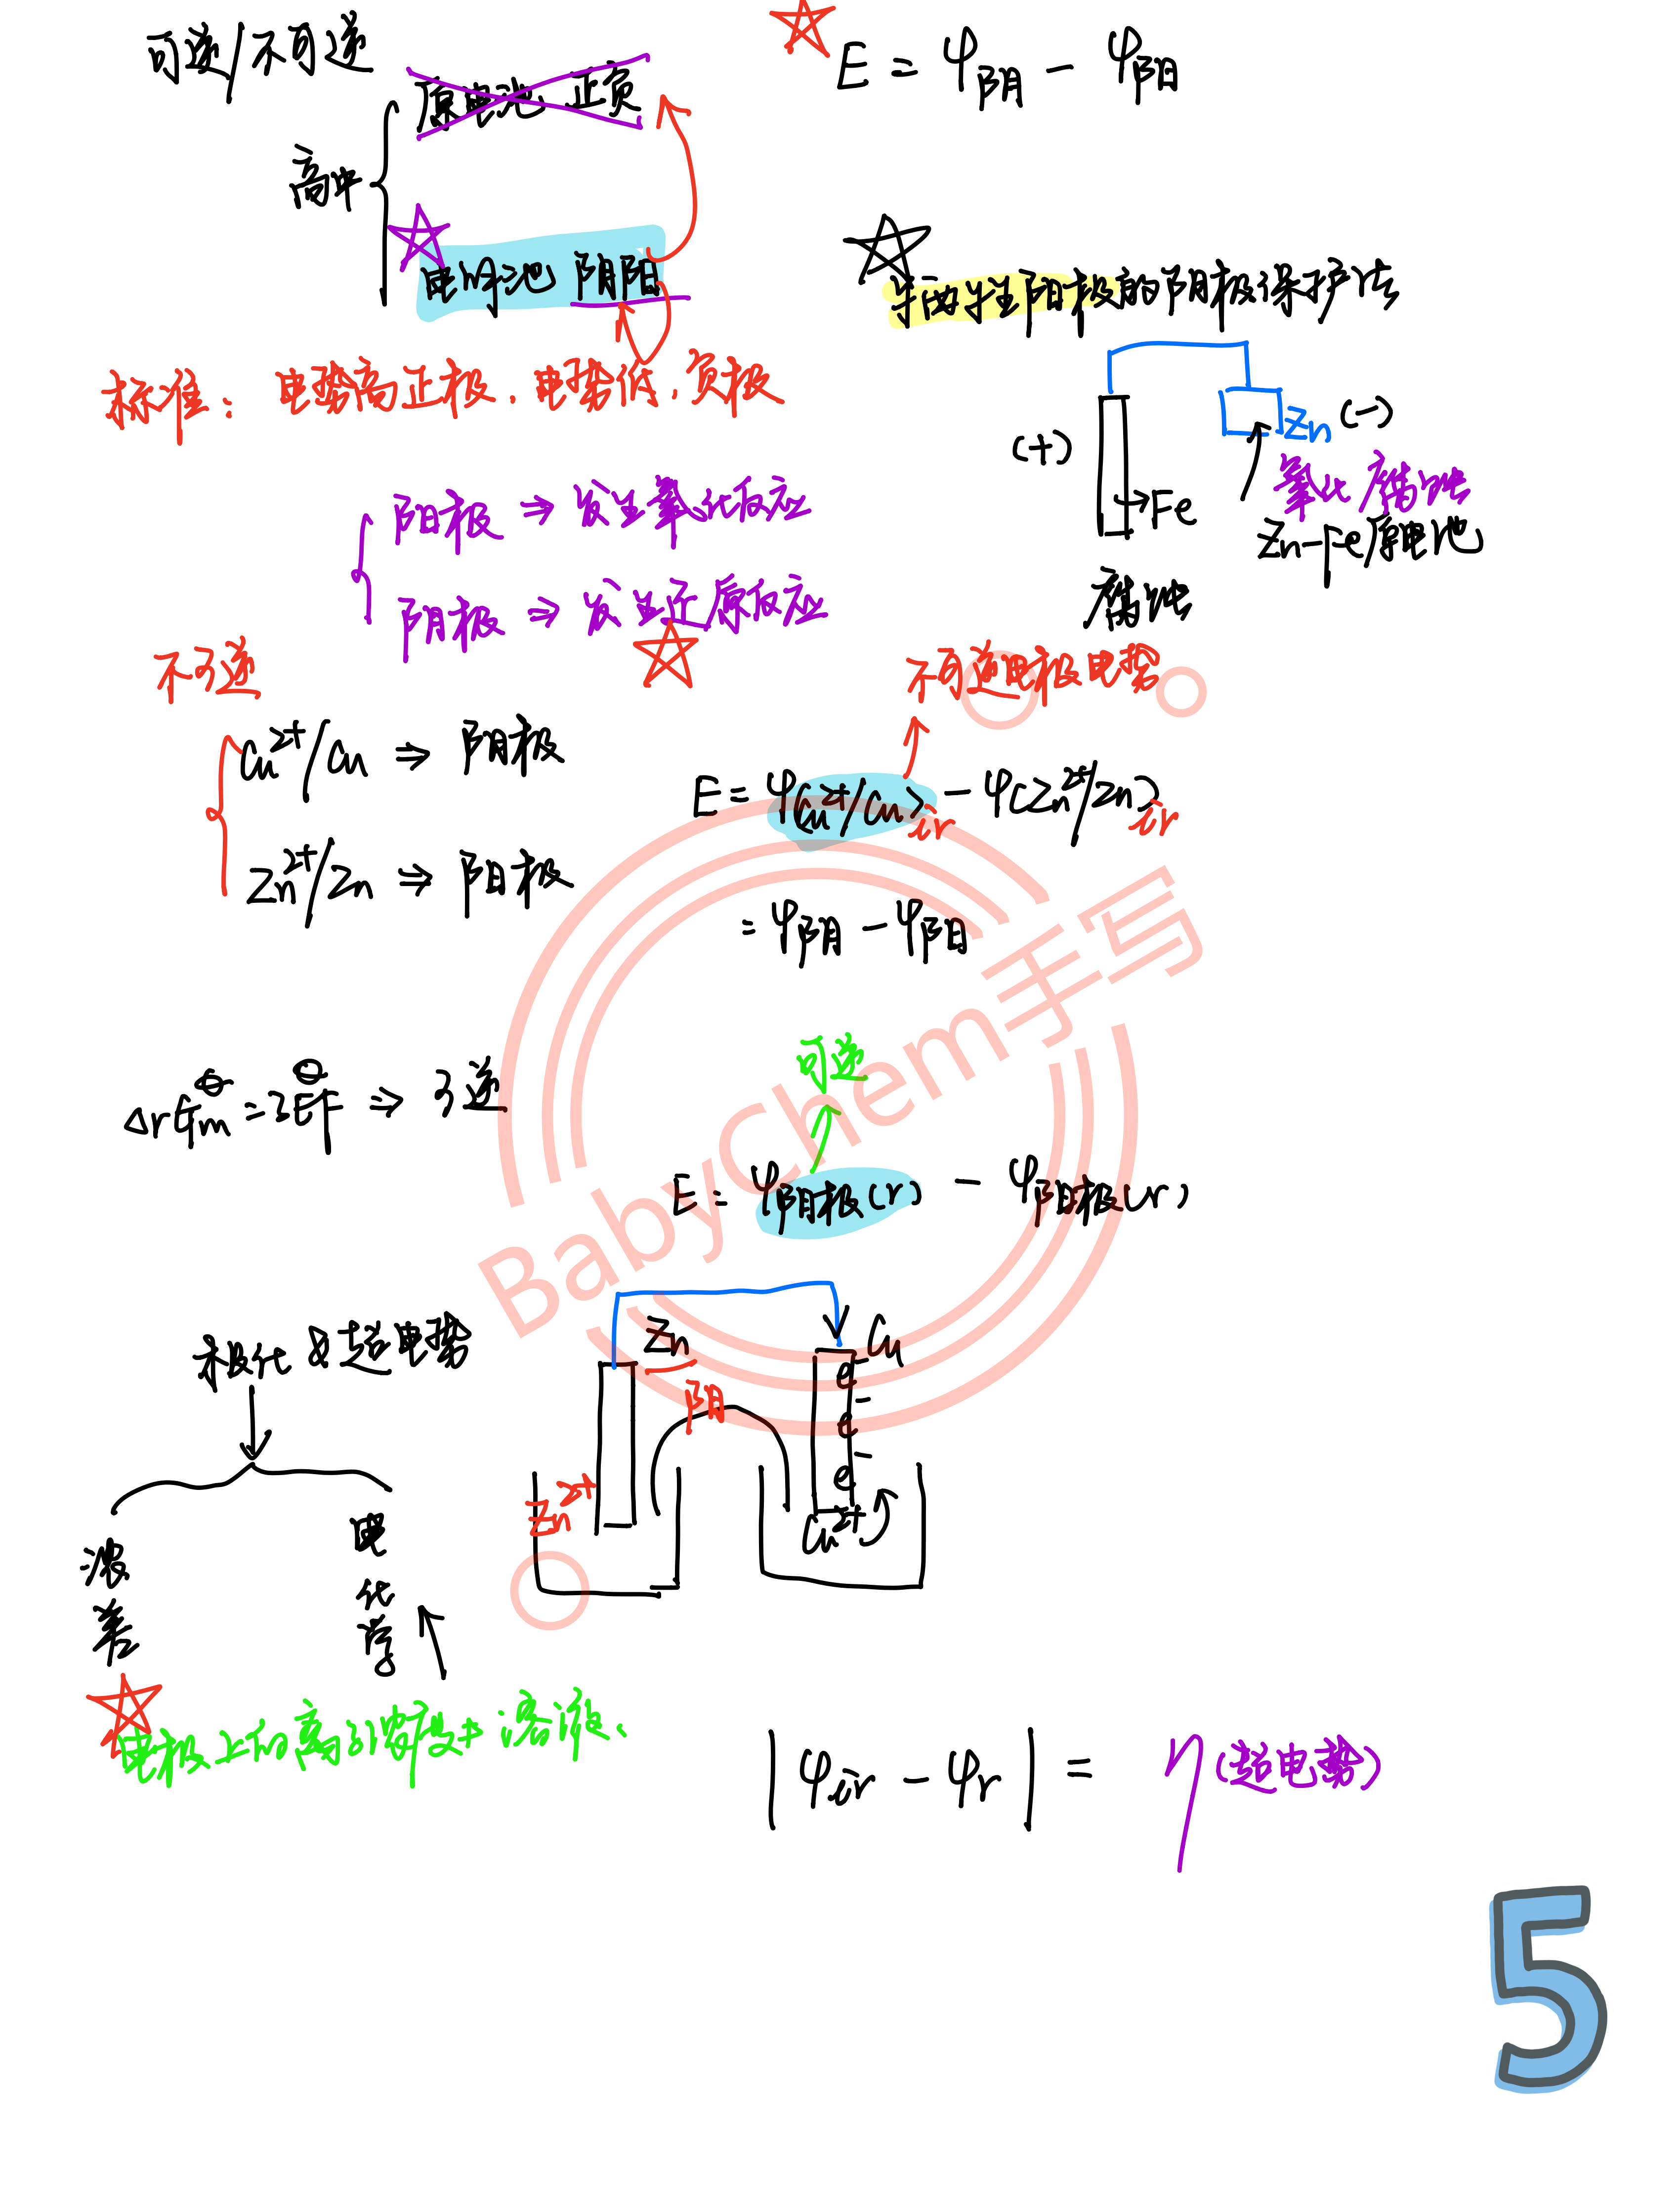 可逆/不可逆
高中
原电池 正负
电解池 阴阳
E = φ阴 - φ阳
标准：电势高正极，电势低，负极
阳极 ⇒ 发生氧化反应
阴极 ⇒ 发生还原反应
牺牲阳极的阴极保护法
(+)
Fe
Zn (-)
氧化腐蚀
Zn-Fe原电池
腐蚀
不可逆
Cu²⁺/Cu ⇒ 阴极
Zn²⁺/Zn ⇒ 阳极
不可逆电极电势
E = φ(Cu²⁺/Cu)ir - φ(Zn²⁺/Zn)ir
= φ阴 - φ阳
ΔrGm^θ = zE^θF ⇒ 可逆
可逆
E = φ阴极(r) - φ阳极(r)
极化 & 超电势
浓差
电化学
Zn
阴
Zn²⁺
Cu
e⁻
e⁻
e⁻
Cu²⁺
电极上的离子浓度≠溶液.
|φir - φr| = η(超电势)
BabyChem手写
5